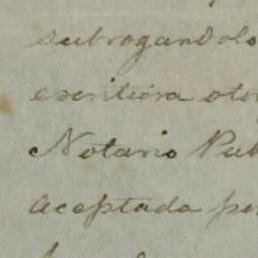 subrogandolo
escritura oto
Notario Pub
aceptada po